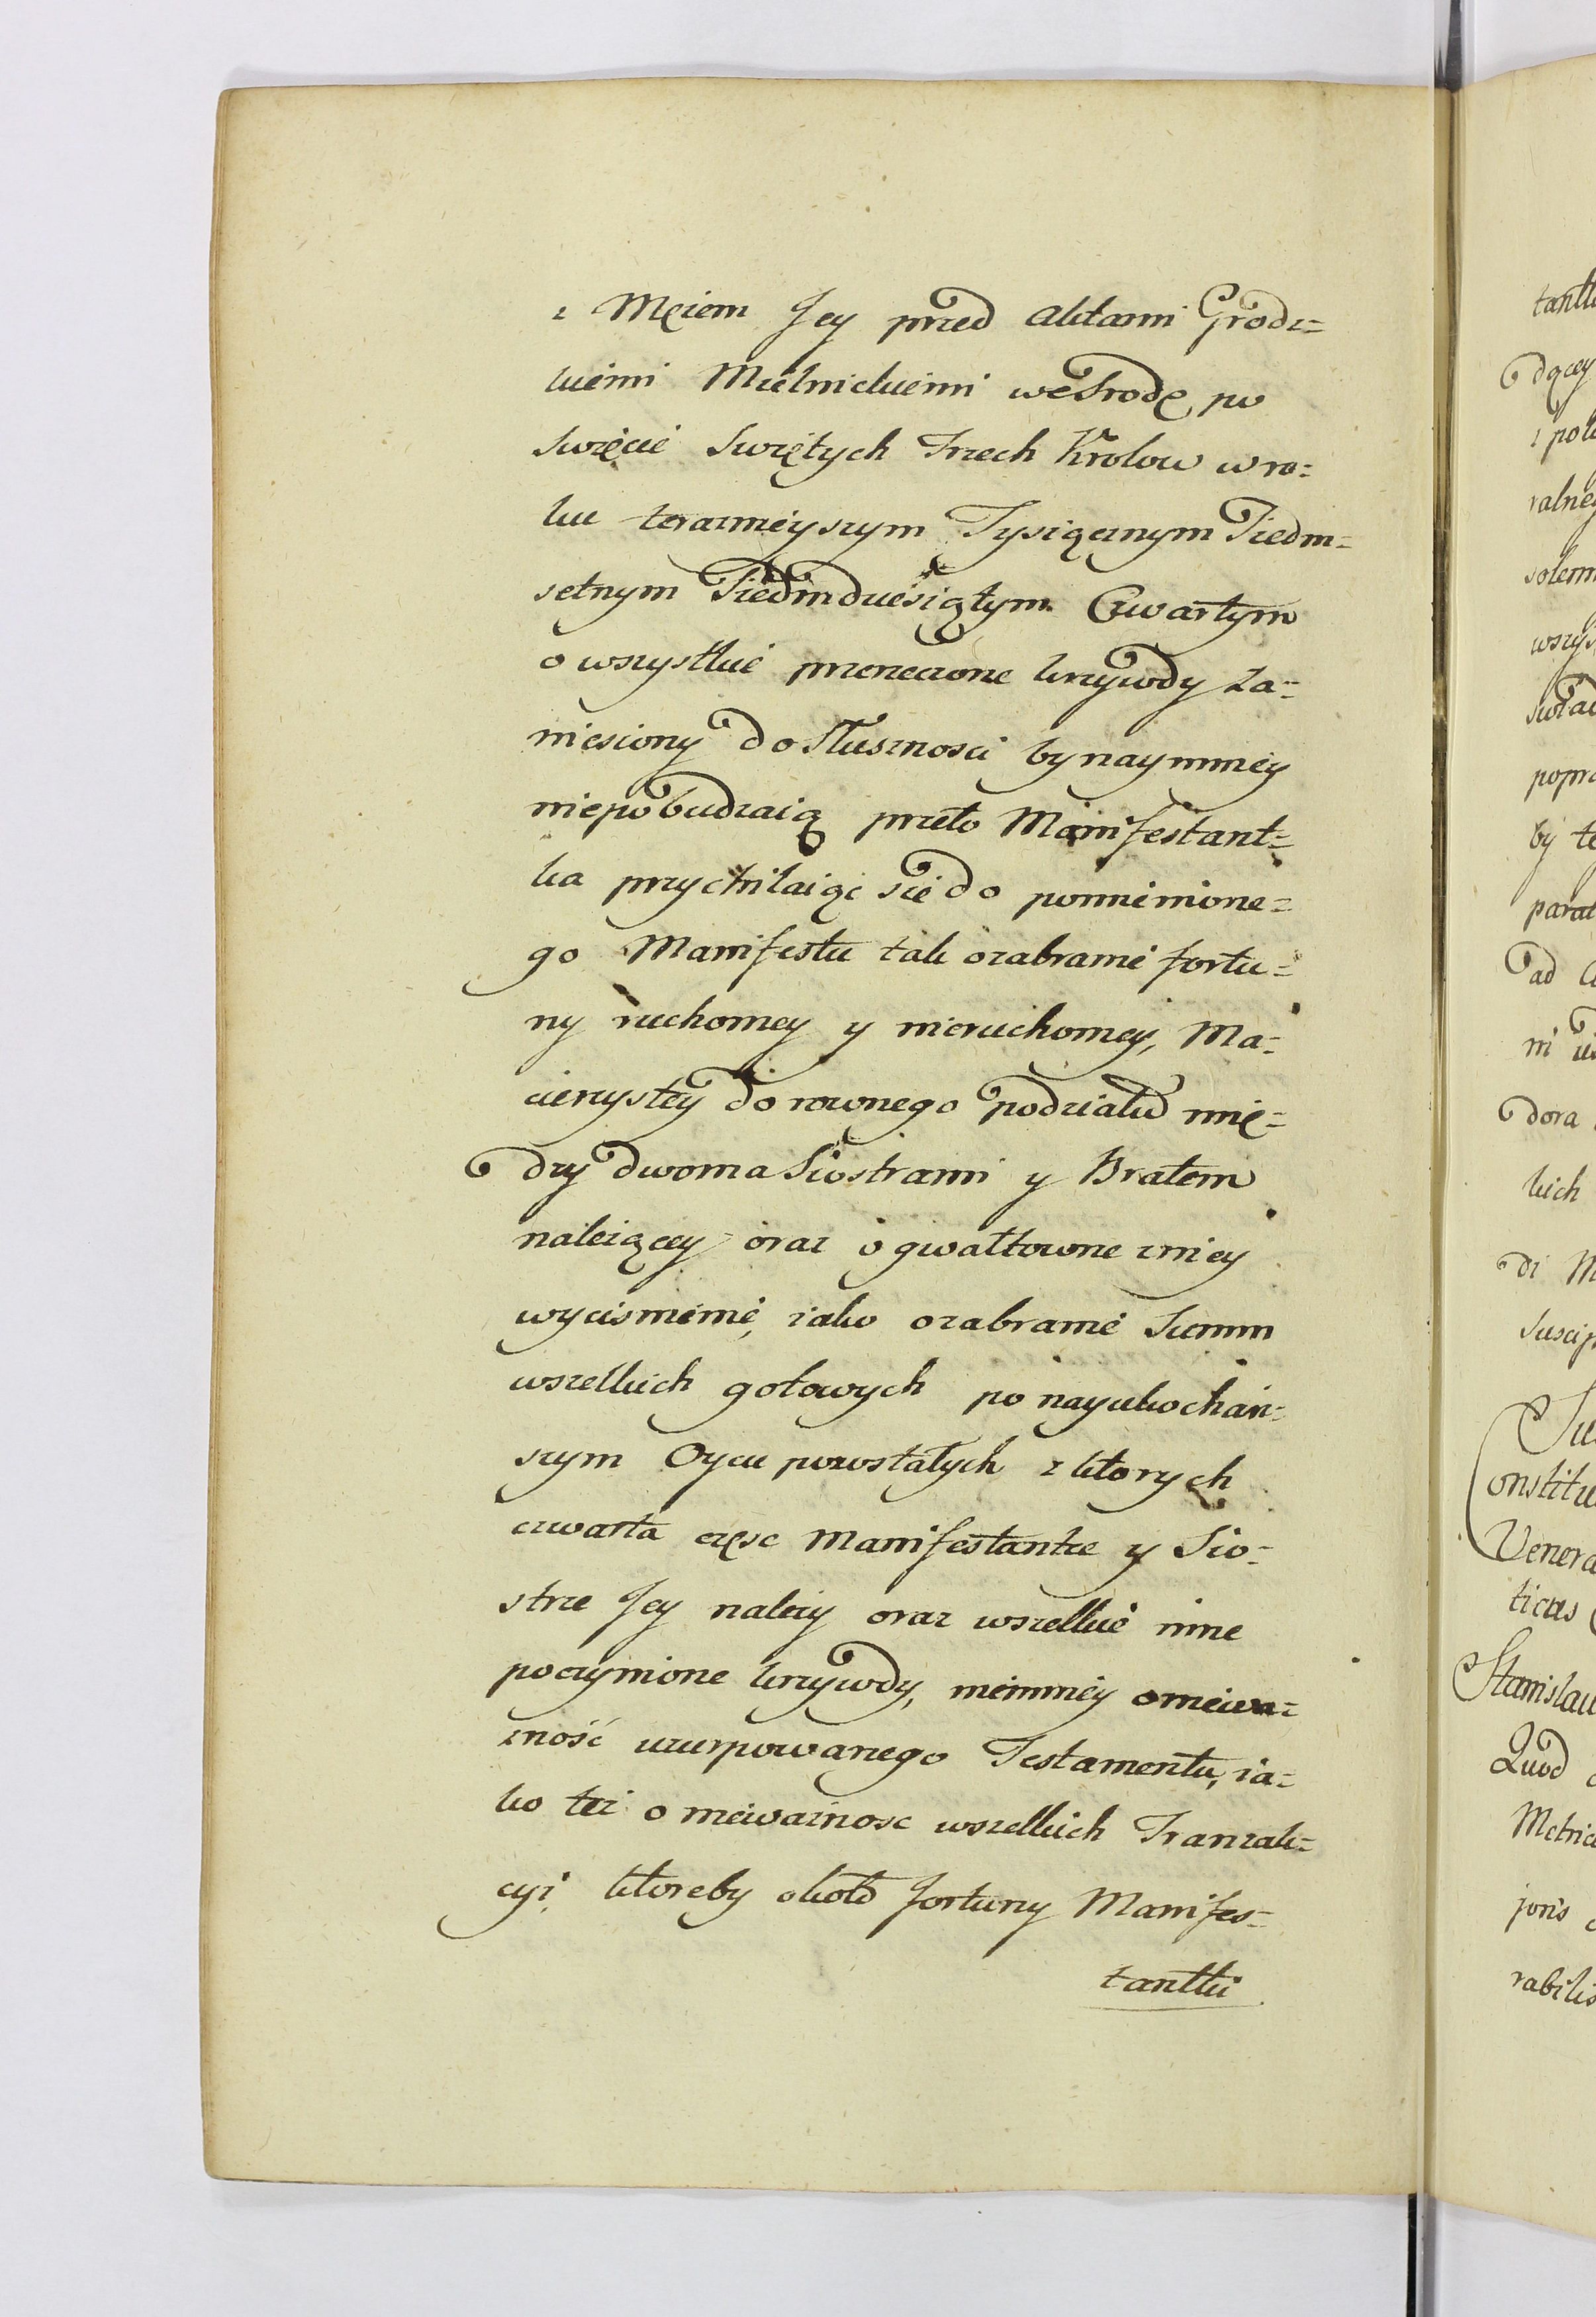 z Mężem Jey przed Aktami Grodz=
kiemi Mielnickiemi we Srodę po
Swięcie Swiętych Trzech Krolow w ro=
ku teraznieyszym Tysiącznym Siedm=
setnym Siedmdziesiątym Czwartym
o wszystkie przerzeczone krzywdy za=
niesiony do Słusznosci bynaymniey
niepobudzaią przeto Manifestant=
ka przychilaiąc się do pomienione=
go Manifestu tak o zabranie fortu=
ny ruchomey y nieruchomey, Ma=
cierzystey do rownego podziału mię=
dzy dwoma Siostrami y Bratem
należącey oraz o gwałtowne z niey
wycisnienie, iako o zabranie Summ
wszelkich gotowych po nayukochań=
szym Oycu pozostałych z ktorych
czwarta częsc Manifestantce y Sio=
strze Jey należy oraz wszelkie inne
poczynione krzywdy, niemniey o niewa=
zność uzurpowanego Testamentu, ia=
ko też o nieważnosc wszelkich Tranzak=
cyi, ktoreby około fortuny Manifes=
tantki
tantk
dącey
ralney
solenn
wszys
popra
by te
parat
ad
ni
dora
kich
di M
suscip
onstitu
Venera
ticus
Stanislau
Quod
Metric
joris
rabilis